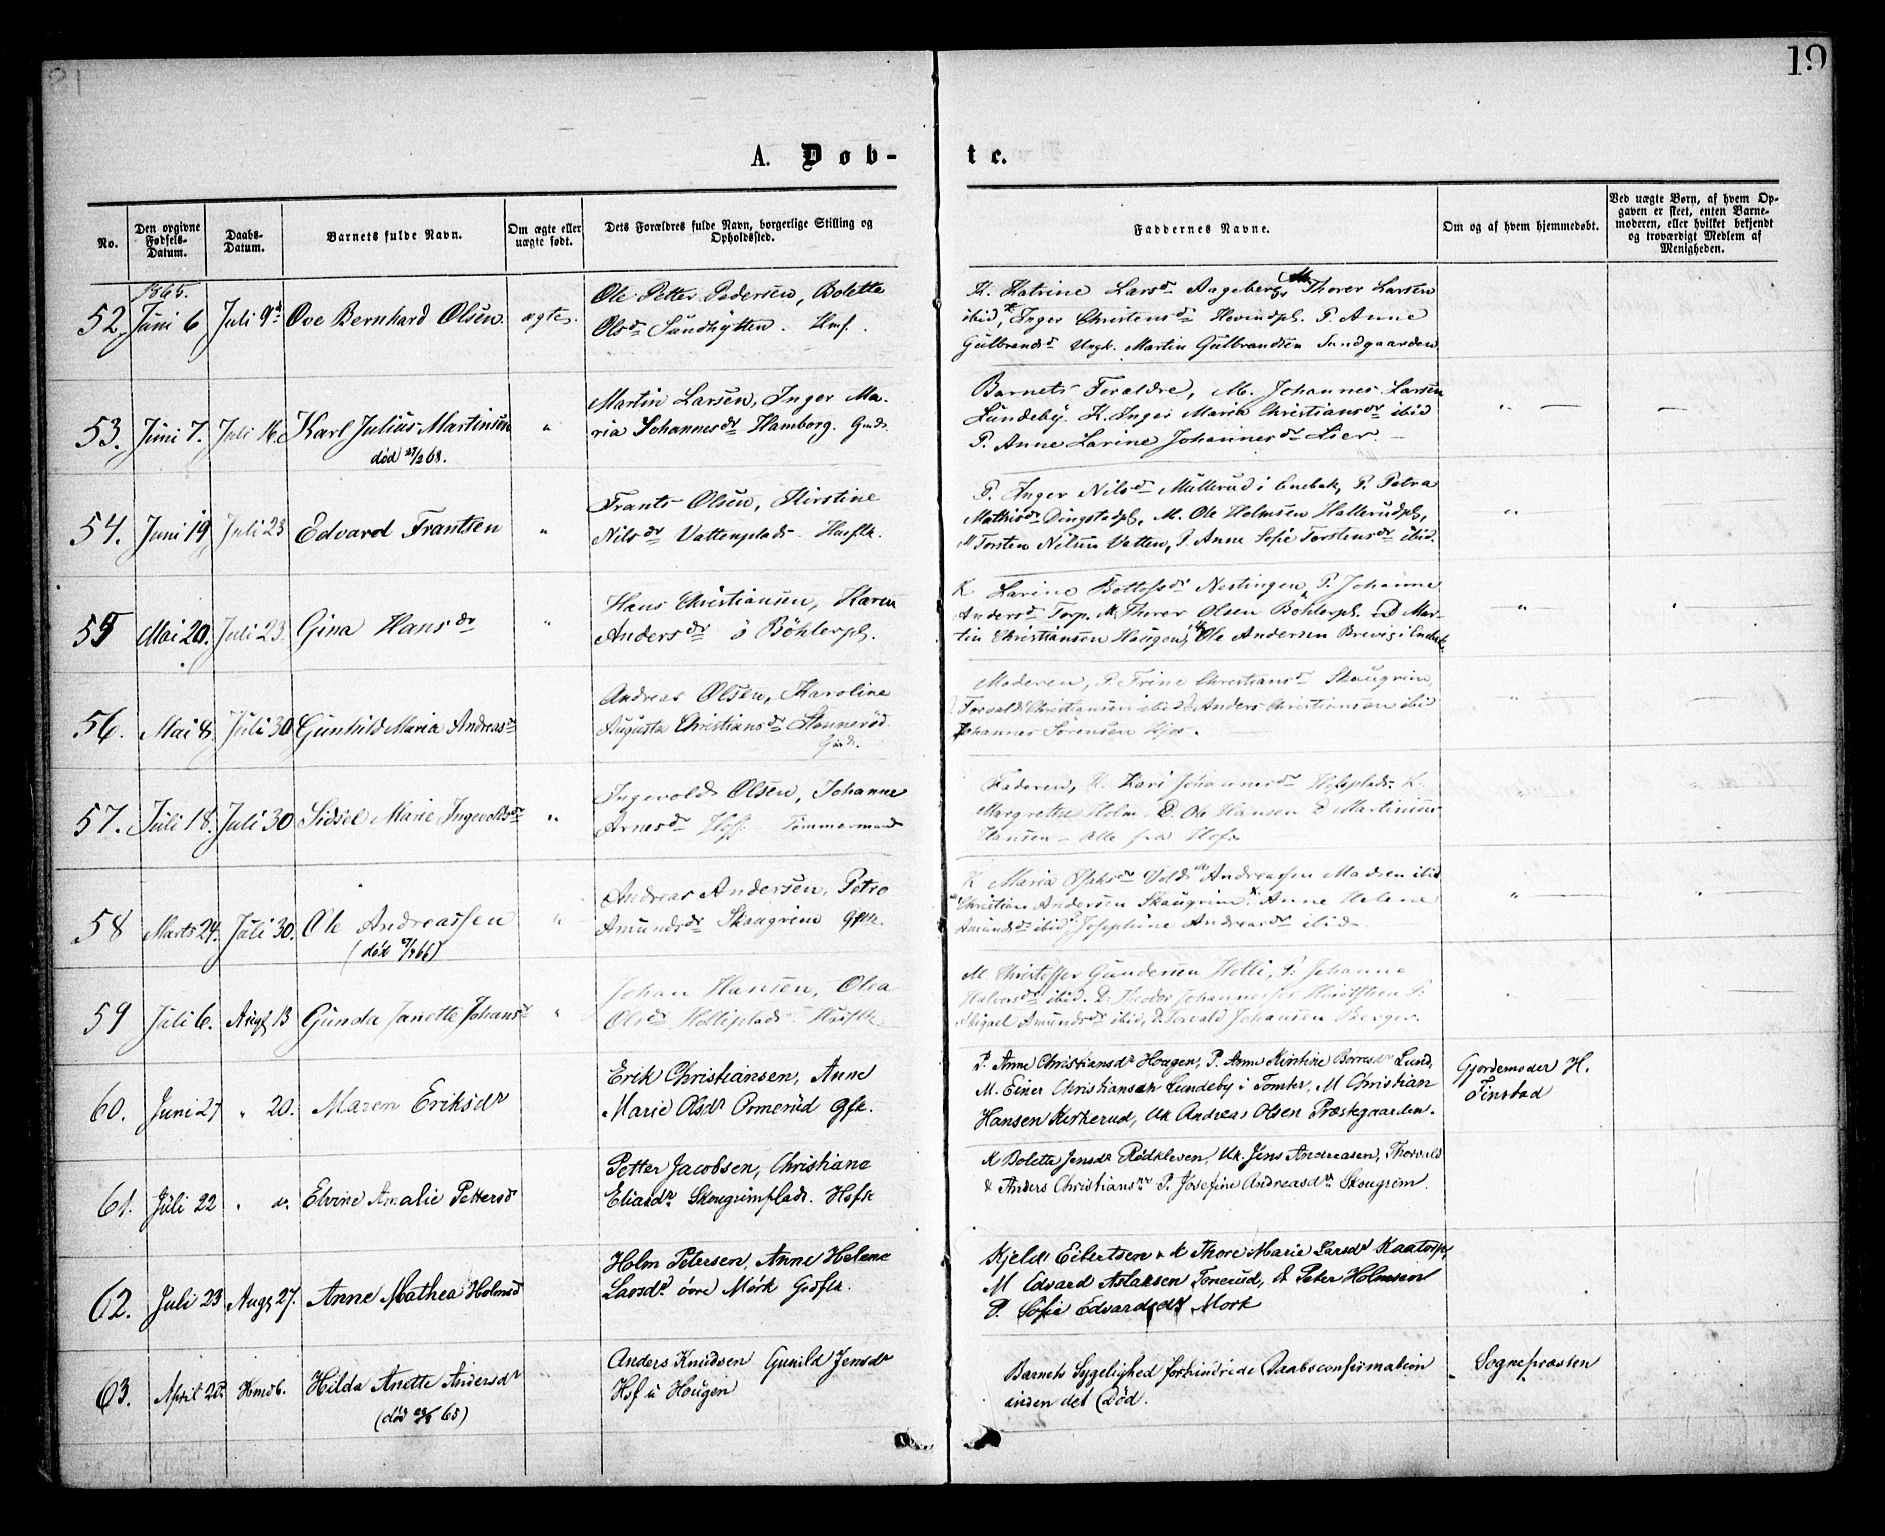 19
A. Døb-
te.
No.
Den opgivne Fødsels-Datum.
Daabs-Datum.
Barnets fulde Navn.
Om ægte eller uægte født.
Dets Forældres fulde Navn, borgerlige Stilling og Opholdssted.
Faddernes Navne.
Om og af hvem hjemmedøbt.
Ved uægte Børn, af hvem Opgaven er skeet, enten Barnemoderen, eller hvilket bekjendt og troværdigt Medlem af Menigheden.
1865.
52. Juni 6 Juli 9d Ove Bernhard Olsen ægte.
Ole Petter Pedersen, Bolette
Olsdr Sundhytten. Hmf.
K. Katrine Larsdr Aageberg, M Thorer Larsen
ibid, K Inger Christensdr Hovindpl. P. Anne
Gulbrandsdr Ungk. Martin Gulbrandsen Sundgaarden
53. Juni 7. Juli 16. Karl Julius Martinsen "
død 27/2 68.
Martin Larsen, Inger Ma-
ria Johannesdr Hamborg. Gmd.
Barnets Forældre, M. Johannes Larsen
Lundeby, K. Inger Maria Christiansdr ibid
P. Anne Larine Johannesdr Lier. —
54. Juni 19, Juli 23 Edvard Frantsen "
Frants Olsen, Kirstine
Nilsdr Vattenplads. Husflk.
P. Inger Nilsdr Mullerud i Enebak, P. Petra
Mathisdr Dingstadpl, M. Ole Holmsen Hallerudpl,
M Torsten Nilsen Vatten, P. Anne Sofie Torstensdr ibid.
55 Mai 20. Juli 23. Gina Hansdr "
Hans Christiansen, Karen
Andersdr ö Böhlerpl.
K Larine Tollefsdr Nestingen, P. Johanne
Andersdr Torp. M. Thorer Olsen Bøhlerpl. D Mar-
tin Christiansen Haugen, M Ole Andersen Brevig i Enebak.
56. Mai 8. Juli 30 Gunhild Maria Andreasdr
Andreas Olsen, Karoline
Augusta Christiansdr Stennerød
Gmd.
Moderen, P. Trine Christiansdr Skaugrim,
Torvald Christiansen ibid D. Anders Christiansen ibid
Johannes Sörensen Kjos.
57. Juli 18. Juli 30 Sidsel Marie Ingevoldsdr "
Ingevold Olsen, Johanne
Arnesdr Hof. Tömmermand
Faderen, K. Kari Johannesdr Hofsplads K.
Margrethe Holm. D. Ole Hansen D Martinius
Hansen – alle fra Hof.
58 Marts 24. Juli 30. Ole Andreassen "
(død 9/4 66)
Andreas Andersen, Petro
Amundsdr Skaugrim Gflk.
K Maria dr Vold, M Andreassen Madsen ibid
Christian Andersen Skaugrim, K. Anne Helene
Amundsdr ibid, P Josephine Andreasdr ibid.
59 Juli 6. Augt 13 Gunda Janette Johansdr "
Johan Hansen, Olea
Olsdr Helliplads Husflk
M. Christoffer Gundersen Helli, P. Johanne
Halvorsdr ibid. D. Theodor Johannessen P.
Abigael Amundsdr ibid, D. Torvald Johansen Berger.
60. Juni 27 " 20. Maren Eriksdr
Erik Christiansen, Anne
Marie Olsdr Ormerud Gfk.
P. Anne Christiansdr Hougen, P. Anne Kirstine Borresdr Lund,
M. Einer Christiansen Lundeby i Tomter, M Christian
Hansen Kirkerud, Uk Andreas Olsen Præstegaarden.
Gjordemoder H.
Finstad
61. Juli 22 " d. Elvine Amalie Pettersdr
Petter Jacobsen, Christiane
Eliasdr Skougrimplads. Hsfk
K Bolette Jensdr Rödkleven, Uk. Jens Andreasen, Thorvald
& Anders Christiansen P. Josefine Andreasdr Skougrim.
62. Juli 23 Augt 27. Anne Mathea Holmsd
Holm Petersen, Anne Helene
Larsdr övre Mørk Grdflk.
Kjeld Eibertsen & K Thore Marie Larsdr Kaatorp,
M Edvard Aslaksen Tonerud, D Peter Holmsen
P. Sofie Edvardsdr Mork
63. April 20. Hmdb. Hilda Anette Andersdr
(død 23/5 65)
Anders Knudsen Gunild Jensdr
Hsf u Hougen
Barnets Sygelighed forhindrede Daabsconfirmation
inden det Død.
Sognepræsten